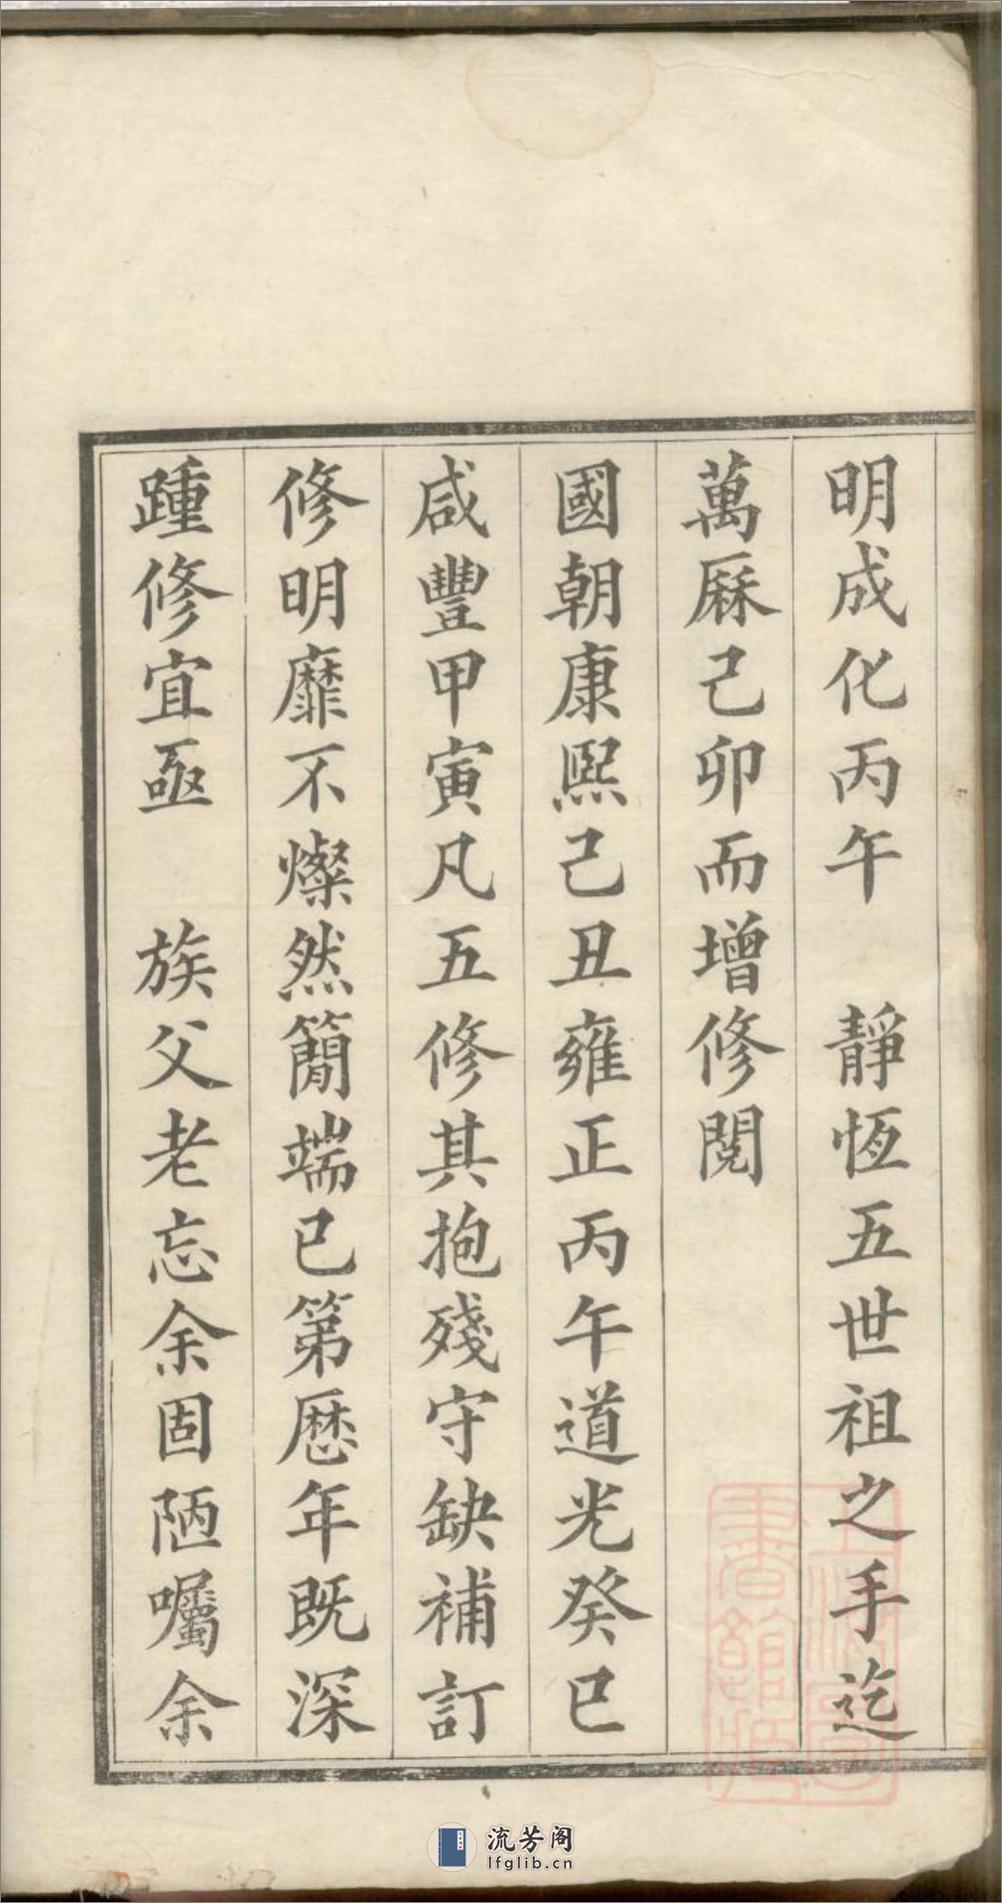 明成化丙午　靜恆五世祖之手迄
萬厤己卯而增修閱
國朝康熙己丑雍正丙午道光癸巳
咸豐甲寅凡五修其抱殘守缺補訂
修明靡不燦然簡端已第歷年既深
踵修宜亟　族父老忘余固陋囑余
流芳阁
lfglib.cn